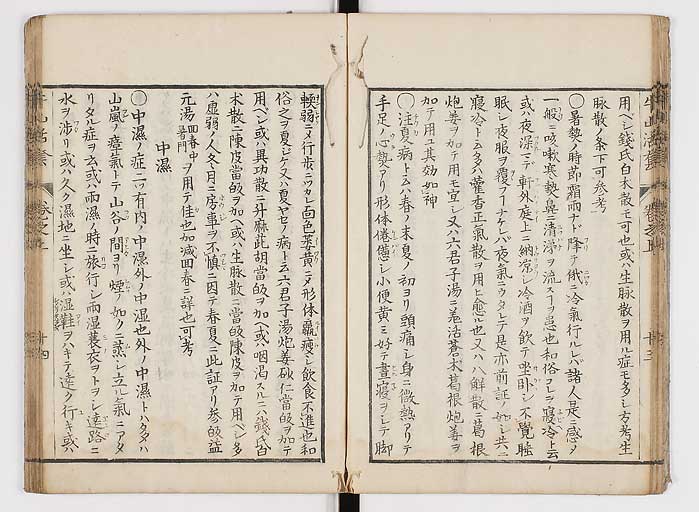 用ヘシ錢氏白朮散モ可也或ハ生脉散ヲ用ル症モ多シ方考生
脉散ノ条下可参考
○暑熱ノ時節霜雨ナド降テ俄ニ冷氣行ルレバ諸人是ニ感メ
一般ニ咳嗽寒熱鼻ニ清涕ヲ流スヿヲ患也和俗コレヲ寝冷ト云
或ハ夜深ニテ軒外庭上ニ納涼シ冷酒ヲ飲テ坐卧シ不覺睡
眠シ夜服ヲ覆フヿナケレバ夜氣ニウタレテ是亦前証ノ如シ共ニ
寝冷ト云多ハ藿香正氣散ヲ用ヒ愈ル也又ハ八解散ニ葛根
炮姜ヲ加テ用モ宜シ又ハ六君子湯ニ羗活蒼朮葛根炮姜ヲ
加テ用ユ其効如神
○注夏病ト云ハ春ノ末夏ノ初ヨリ頭痛シ身ニ微熱アリテ
手足ノ心熱アリ形体倦怠シ小便黄ニ好テ晝寝ヲシテ脚
輭弱ニメ行歩ニツカレ面色萎黄ニメ形体羸瘦シ飲食不進也和
俗之ヲ夏マケ又ハ夏ヤセノ病ト云六君子湯炮姜砂仁當皈ヲ加テ
用ヘシ或ハ異功散ニ升麻茈胡當皈ヲ加ヘ或ハ咽渇スルニハ錢氏白
朮散ニ陳皮當皈ヲ加ヘ或ハ生脉散ニ當皈陳皮ヲ加テ用ヘシ多
ハ虚弱ノ人冬月ニ房事ヲ不慎ニ因テ春夏ニ此証アリ参皈益
元湯四春中暑門ヲ用テ佳也加减四春ニ詳也可考
中濕
○中濕ノ症二ツ有内ノ中濕外ノ中濕也外ノ中濕トハタタハ
山嵐ノ瘴氣トテ山谷ノ間ヨリ煙ノ如クニ蒸シ立ル氣ニアタ
リタル症ヲ云或ハ雨濕ノ時ニ旅行シ雨湿蓑衣ヲトヲシ遠路ニ
水ヲ渉リ或ハ久ク濕地ニ坐シ或ハ湿鞋ヲハキテ遠ク行キ或ハ